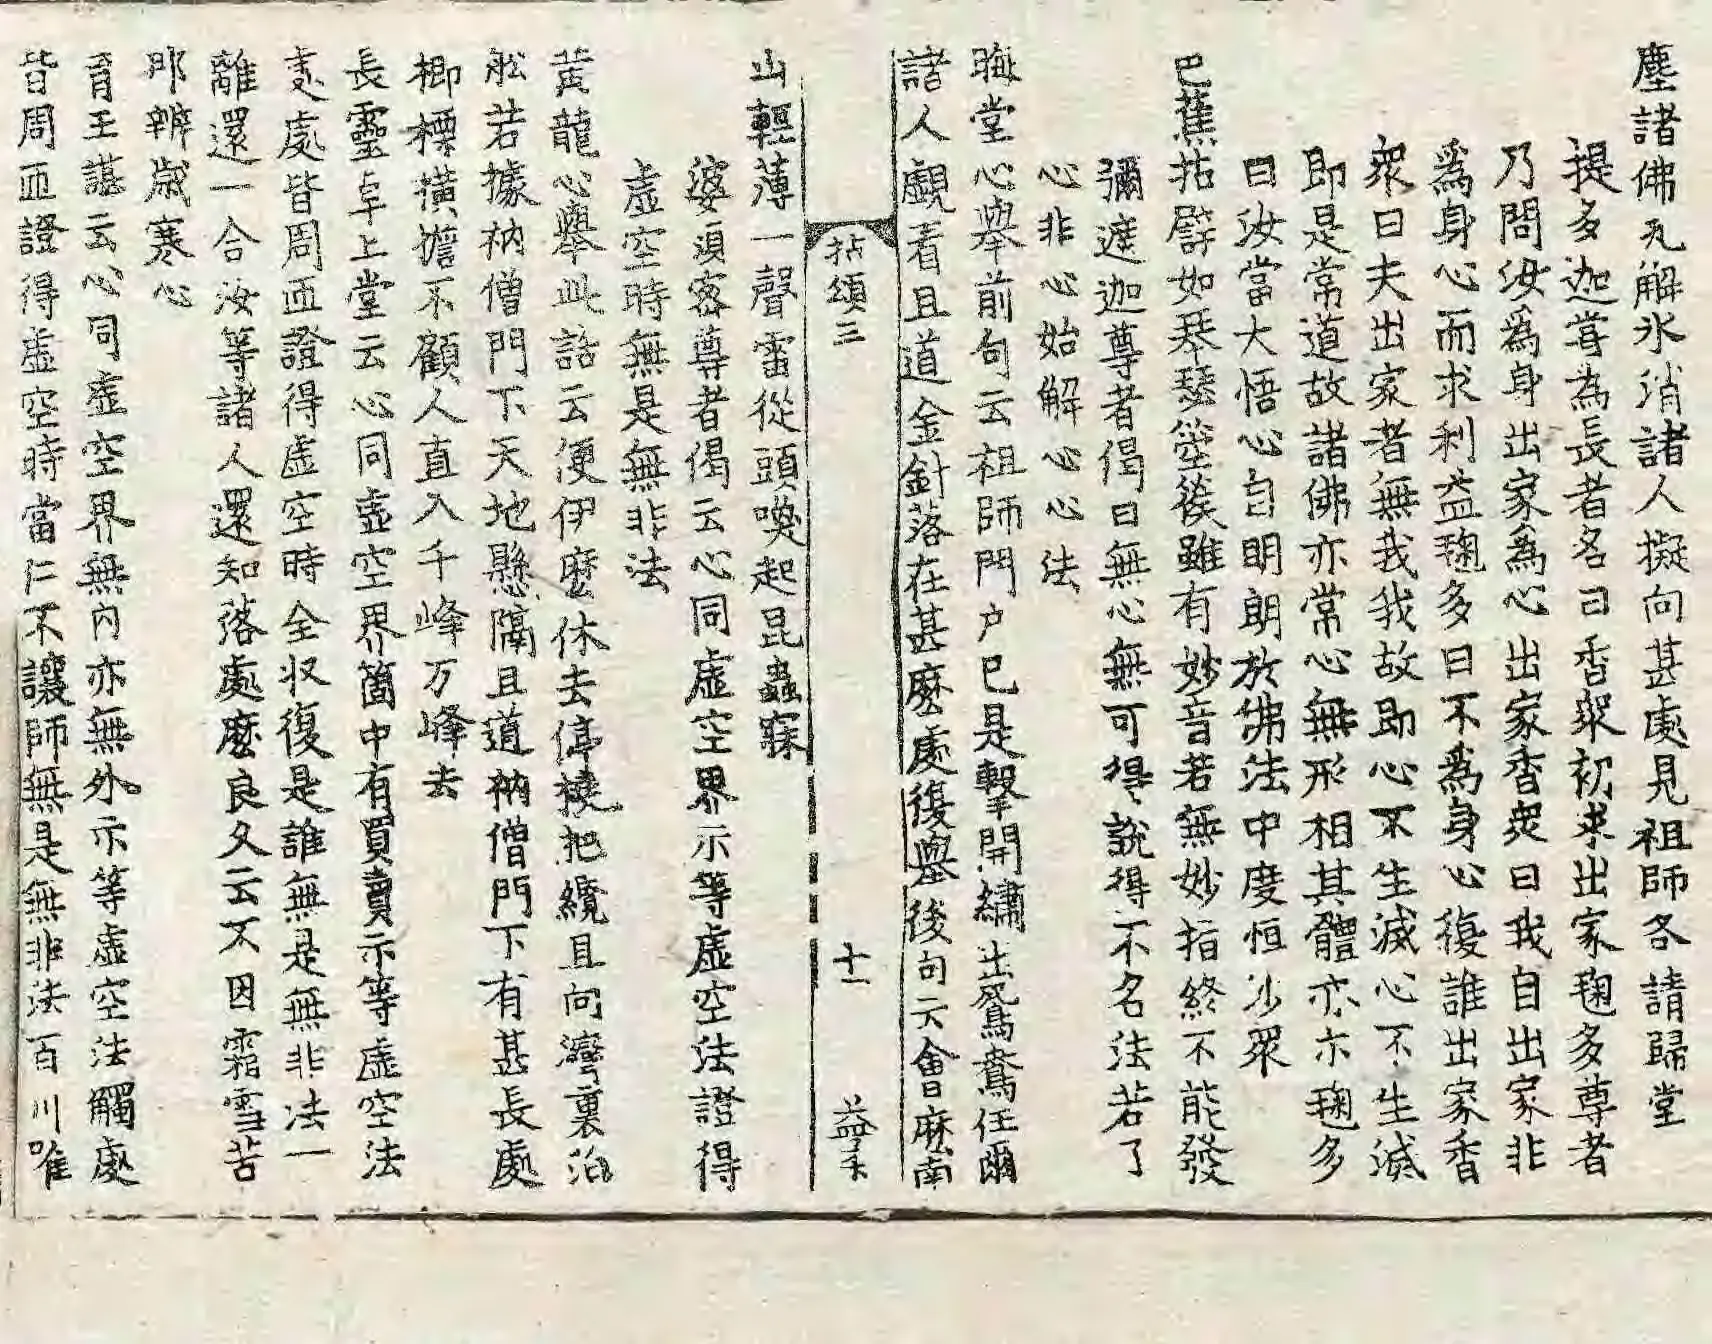 塵諸佛瓦解氷消諸人擬向甚處見祖師各請歸堂
提多迦尊為長者名曰香衆初求出家毱多尊者
乃問汝為身出家為心出家香衆曰我自出家非
為身心而求利益毱多曰不為身心復誰出家香
衆曰夫出家者無我我故即心不生滅心不生滅
即是常道故諸佛亦常心無形相其體亦亦毱多
曰汝當大悟心自明朗於佛法中度恒沙衆
巴蕉拈譬如琴瑟箜篌雖有妙音若無妙指終不能發
彌遮迦尊者偈曰無心無可得說得不名法若了
心非心始解心心法
晦堂心舉前句云祖師門户已是擊開繡出鴛鴦任爾
諸人覷看且道金針落在甚麽處復舉後句云會麽南
拈頌三
十一
益予
山輕薄一聲雷從頭喚起昆蟲寐
婆須密尊者偈云心同虛空界示等虛空法證得
虛空時無是無非法
黃龍心舉此話云便伊麽休去停橈把纜且向灣裏泊
舩若據衲僧門下天地懸隔且道衲僧門下有甚長處
楖標横擔不顧人直入千峰万峰去
長靈卓上堂云心同虛空界箇中有買賣示等虛空法
處處皆周匝證得虛空時全収復是誰無是無非法一
離還一合汝等諸人還知落處麽良久云不因霜雪苦
那辨歲寒心
育王諶云心同虛空界無内亦無外示等虛空法觸處
皆周匝證得虛空時當仁不讓師無是無非法百川唯